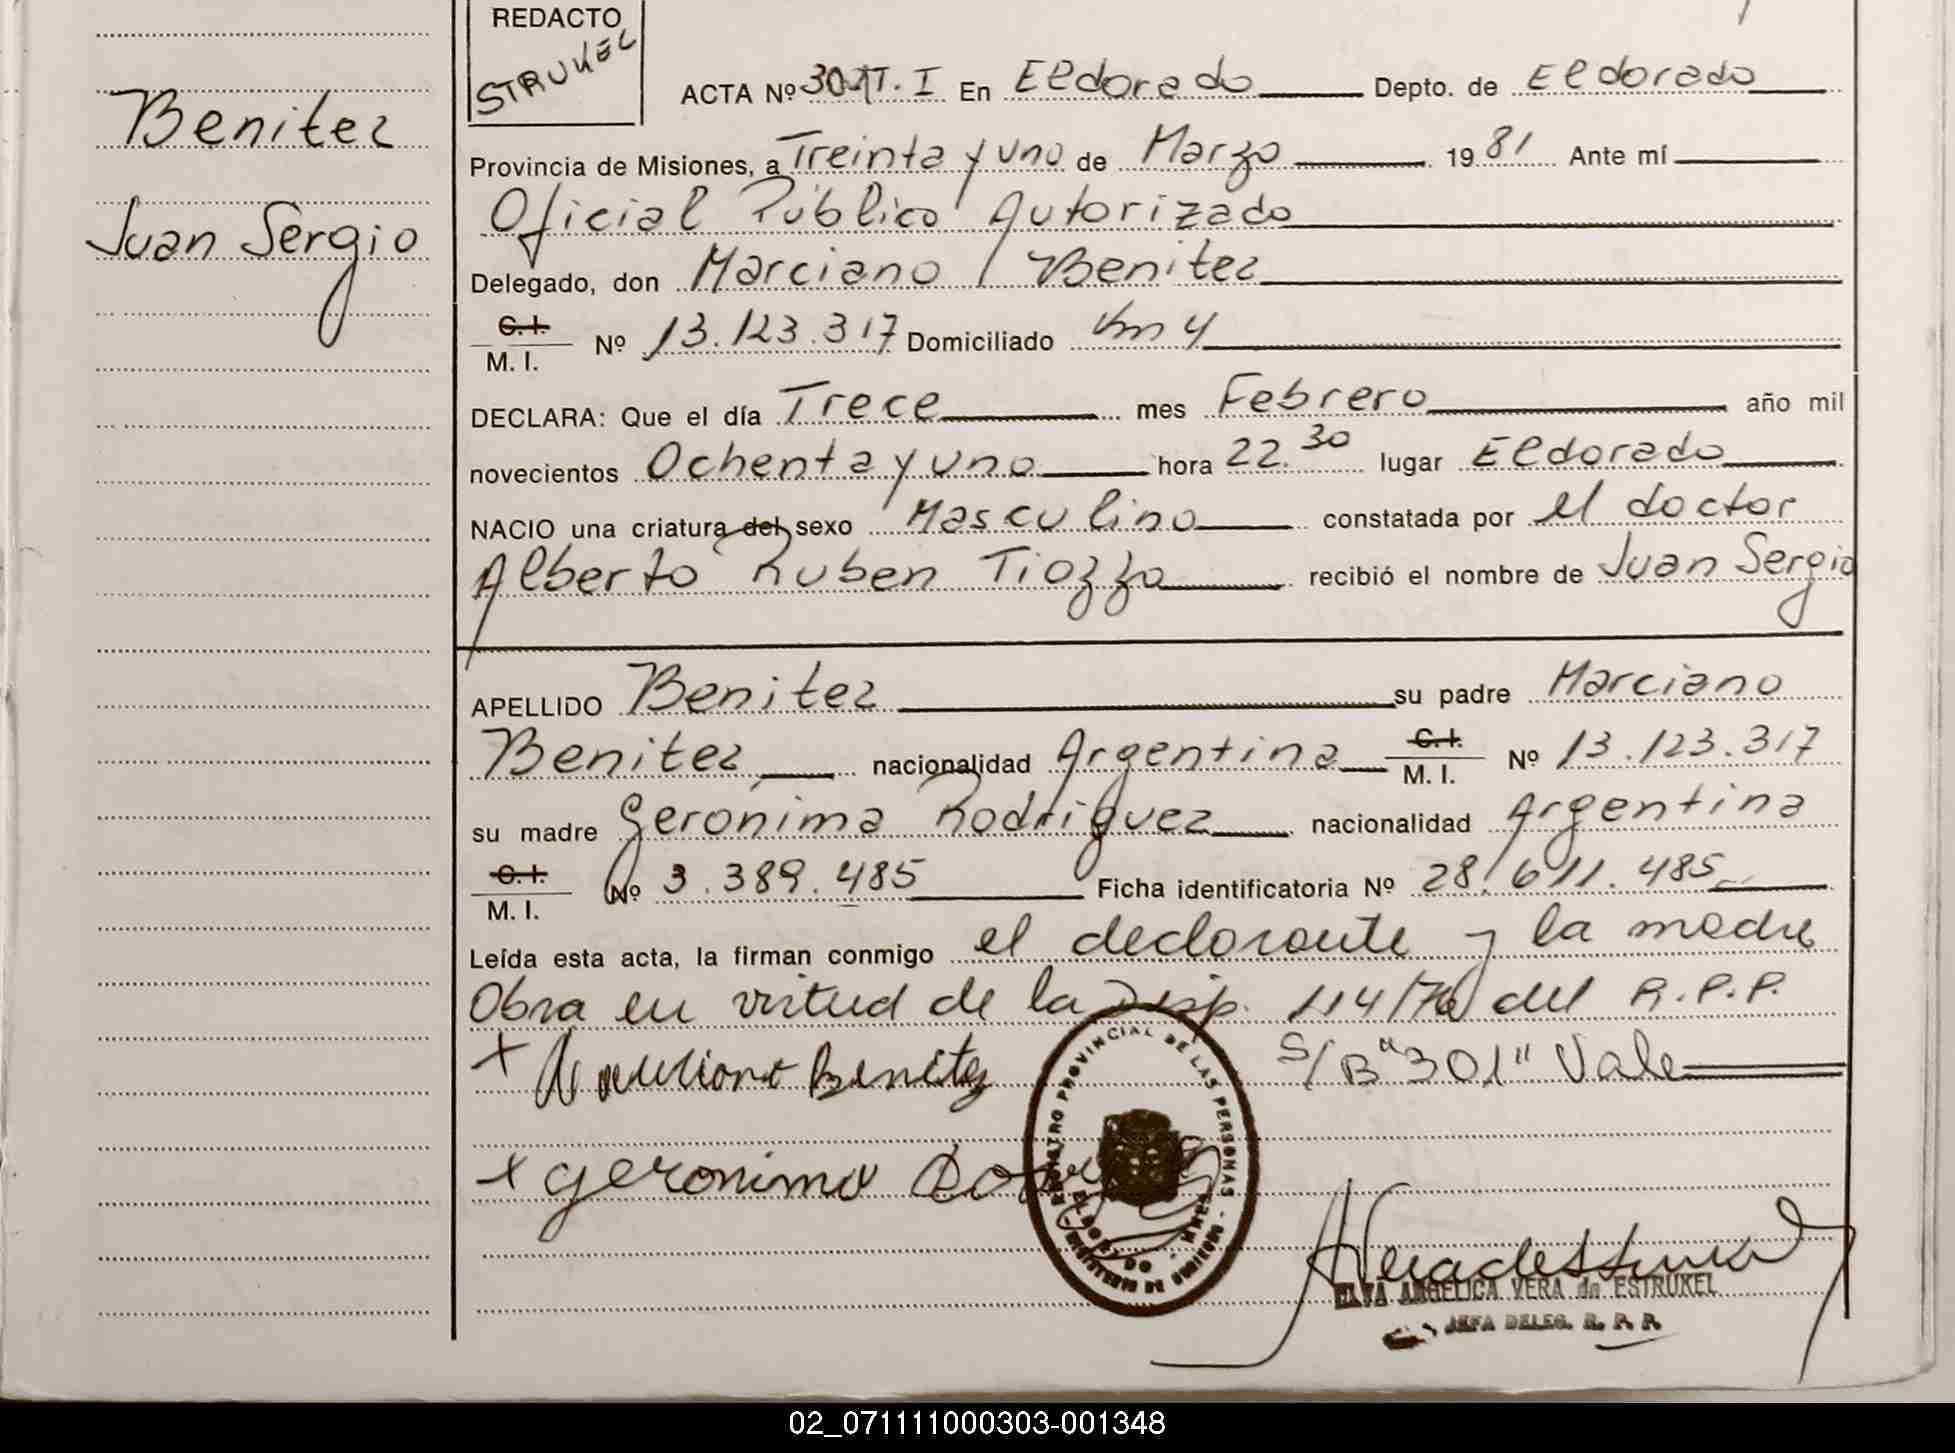 REDACTO
STRUKEL
Benitez
Juan Sergio
ACTA Nº 301 T. I En Eldorado Depto. de Eldorado
Provincia de Misiones, a Treinta y uno de Marzo 1981 Ante mí
Oficial Público Autorizado
Delegado, don Marciano Benitez
C.I.
M. I. Nº 13.123.317 Domiciliado Km 4
DECLARA: Que el día Trece mes Febrero año mil
novecientos Ochenta y uno hora 22.30 lugar Eldorado
NACIO una criatura del sexo Masculino constatada por el doctor
Alberto Ruben Tiozzo recibió el nombre de Juan Sergio
APELLIDO Benitez su padre Marciano
Benitez nacionalidad Argentina C.I. M. I. Nº 13.123.317
su madre Gerónima Rodriguez nacionalidad Argentina
C.I.
M. I. Nº 3.389.485 Ficha identificatoria Nº 28.611.485
Leída esta acta, la firman conmigo el declarante y la madre
Obra en virtud de la Disp. 114/76 del R.P.P.
S/B "301" Vale
Benitez
Geronima
REGISTRO PROVINCIAL DE LAS PERSONAS
MINISTERIO DE GOBIERNO
ELVA ANGELICA VERA de ESTRUKEL
JEFA DELEG. R. P. P.
02_071111000303-001348